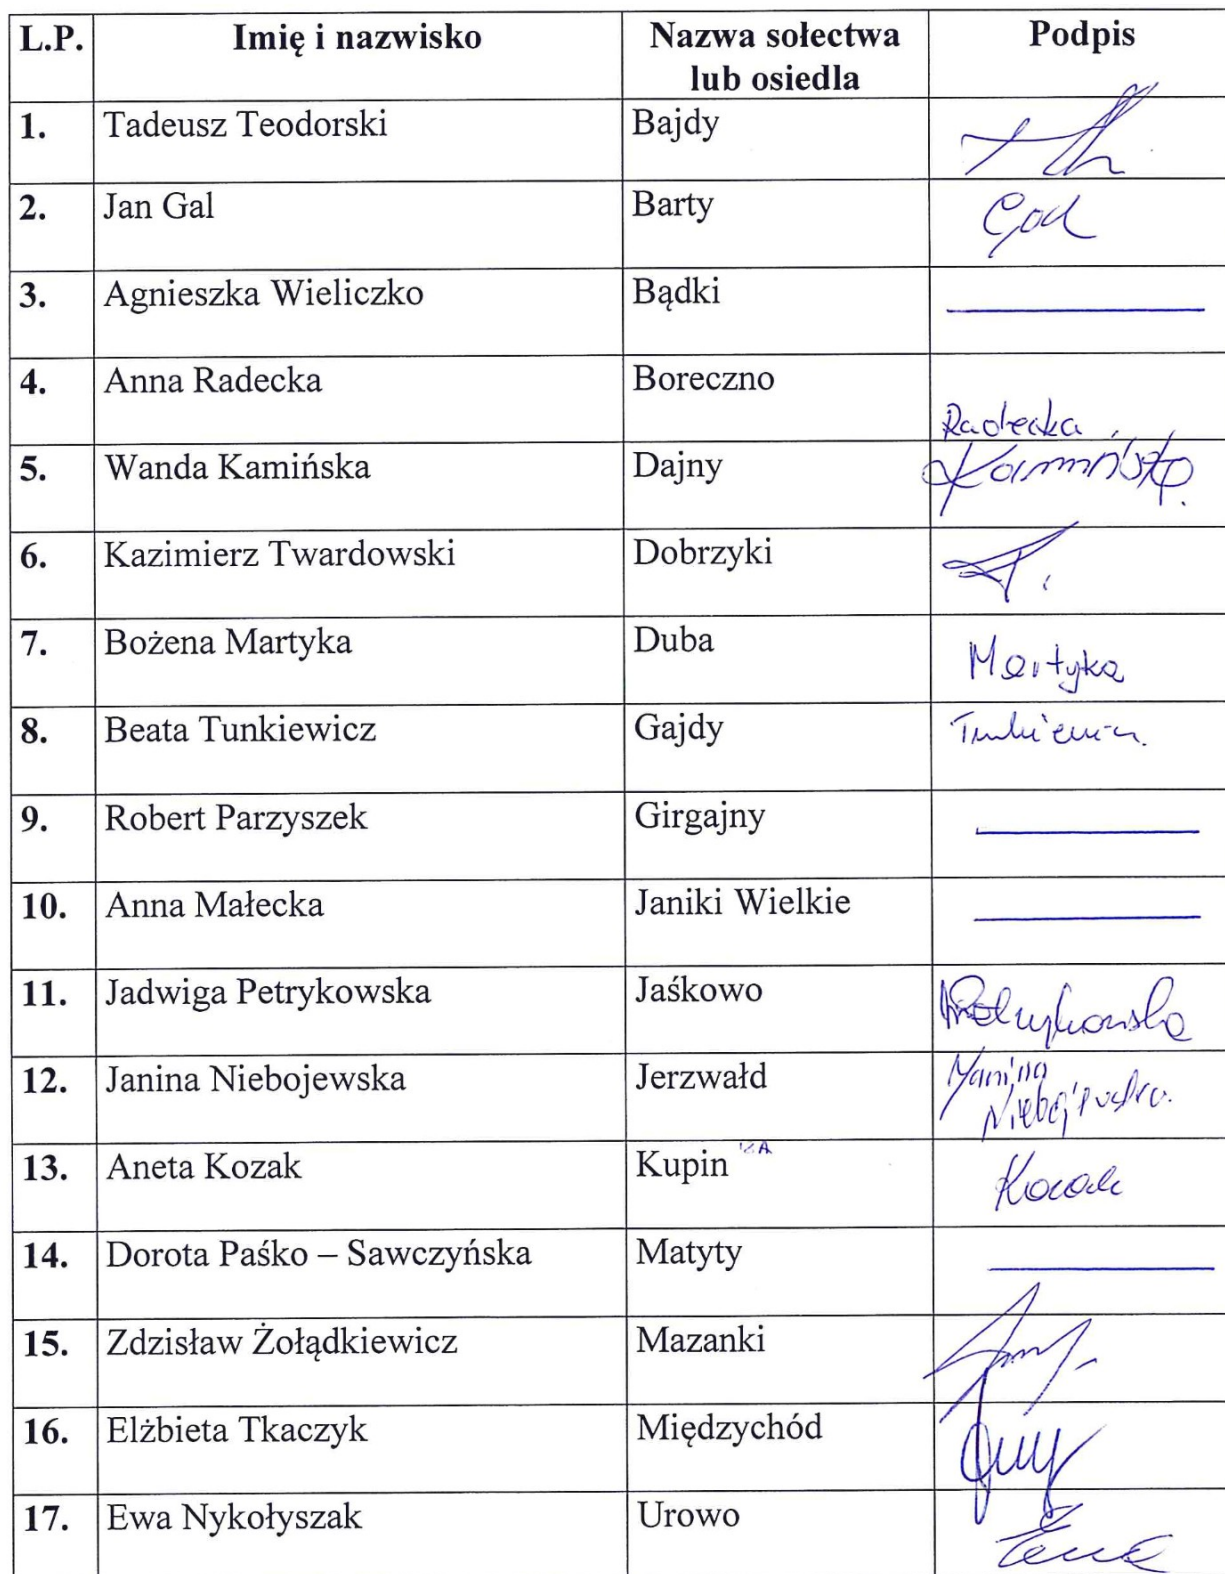 L.P. Imię i nazwisko Nazwa sołectwa Podpis
lub osiedla
1. Tadeusz Teodorski Bajdy
2. Jan Gal Barty Gal
3. Agnieszka Wieliczko Bądki
4. Anna Radecka Boreczno Radecka
5. Wanda Kamińska Dajny Kamińska
6. Kazimierz Twardowski Dobrzyki
7. Bożena Martyka Duba Martyka
8. Beata Tunkiewicz Gajdy Tunkiewicz
9. Robert Parzyszek Girgajny
10. Anna Małecka Janiki Wielkie
11. Jadwiga Petrykowska Jaśkowo Petrykowska
12. Janina Niebojewska Jerzwałd Janina
Niebojewska
13. Aneta Kozak Kupin Kozak
14. Dorota Paśko – Sawczyńska Matyty
15. Zdzisław Żołądkiewicz Mazanki
16. Elżbieta Tkaczyk Międzychód
17. Ewa Nykołyszak Urowo